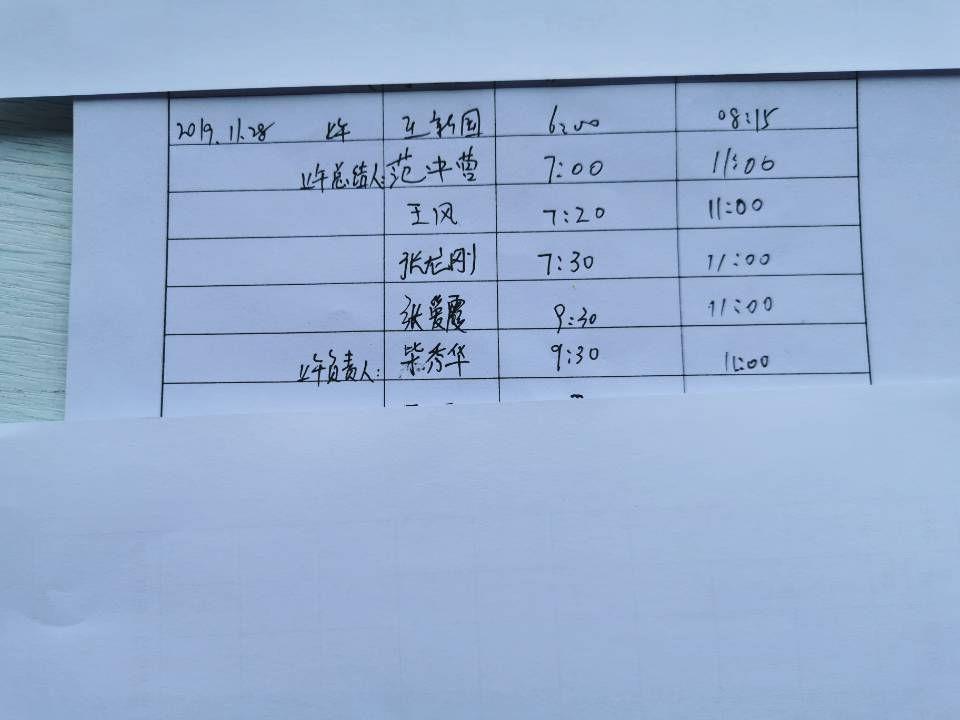 2019.11.28 上午 王新国 6:00 08:15
上午总结人: 范中曹 7:00 11:00
王风 7:20 11:00
张龙刚 7:30 11:00
张爱霞 9:30 11:00
上午负责人: 柴秀华 9:30 11:00